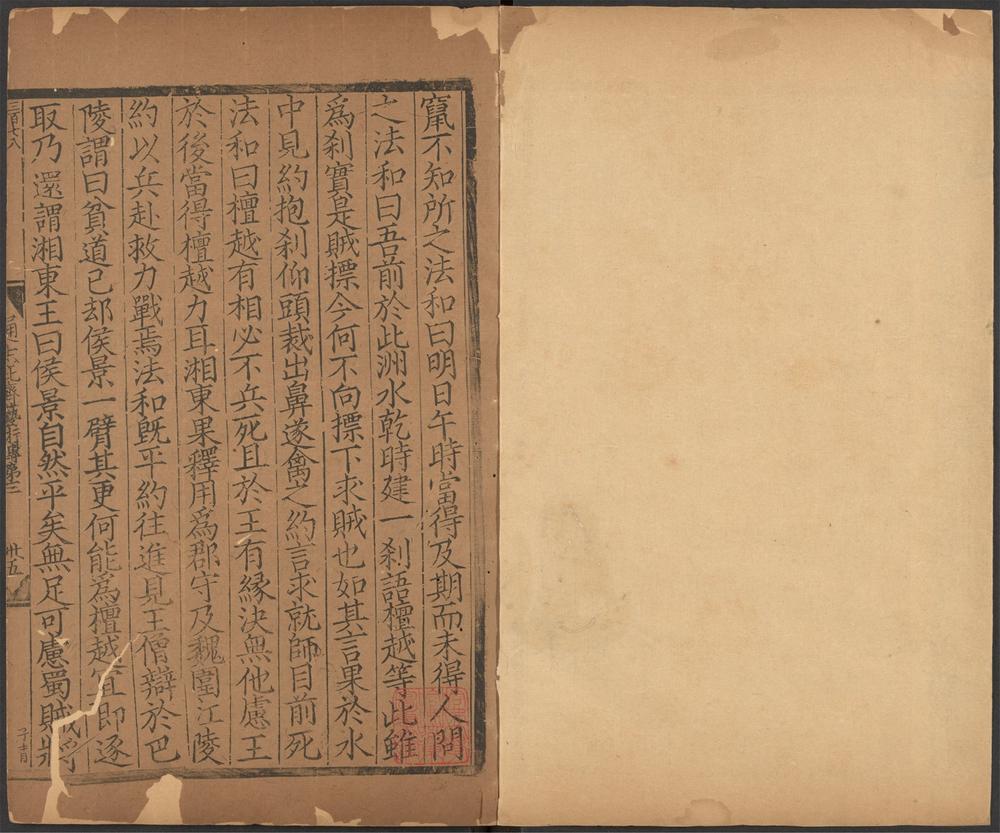 竄不知所之法和曰明日午時當得及期而未得人問
之法和曰吾前於此洲水乾時建一刹語檀越等此雖
爲刹實是賊摽今何不向摽下求賊也如其言果於水
中見約抱刹仰頭裁出鼻遂禽之約言求就師目前死
法和曰檀越有相必不兵死且於王有縁決無他慮王
於後當得檀越力耳湘東果釋用爲郡守及魏圍江陵
約以兵赴救力戰焉法和旣平約往進見王僧辯於巴
陵謂曰貧道已却侯景一臂其更何能爲檀越宜即逐
取乃還謂湘東王曰侯景自然平矣無足可慮蜀賊將
三百七八
通志北齊藝術傳第三
卅五